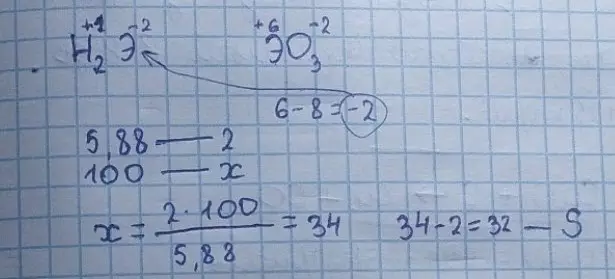 H₂⁺¹Э⁻² Э⁺⁶O₃⁻²
6-8=-2
5,88 — 2
100 — x
x = 2·100 / 5,88 = 34 34-2=32 — S